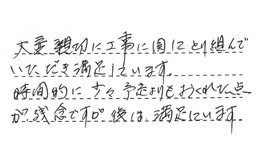 大変親切に工事に関にとり組んで
いただき満足しています。
時間的に少々予定よりもおくれた点
が残念ですが後は、満足しています。